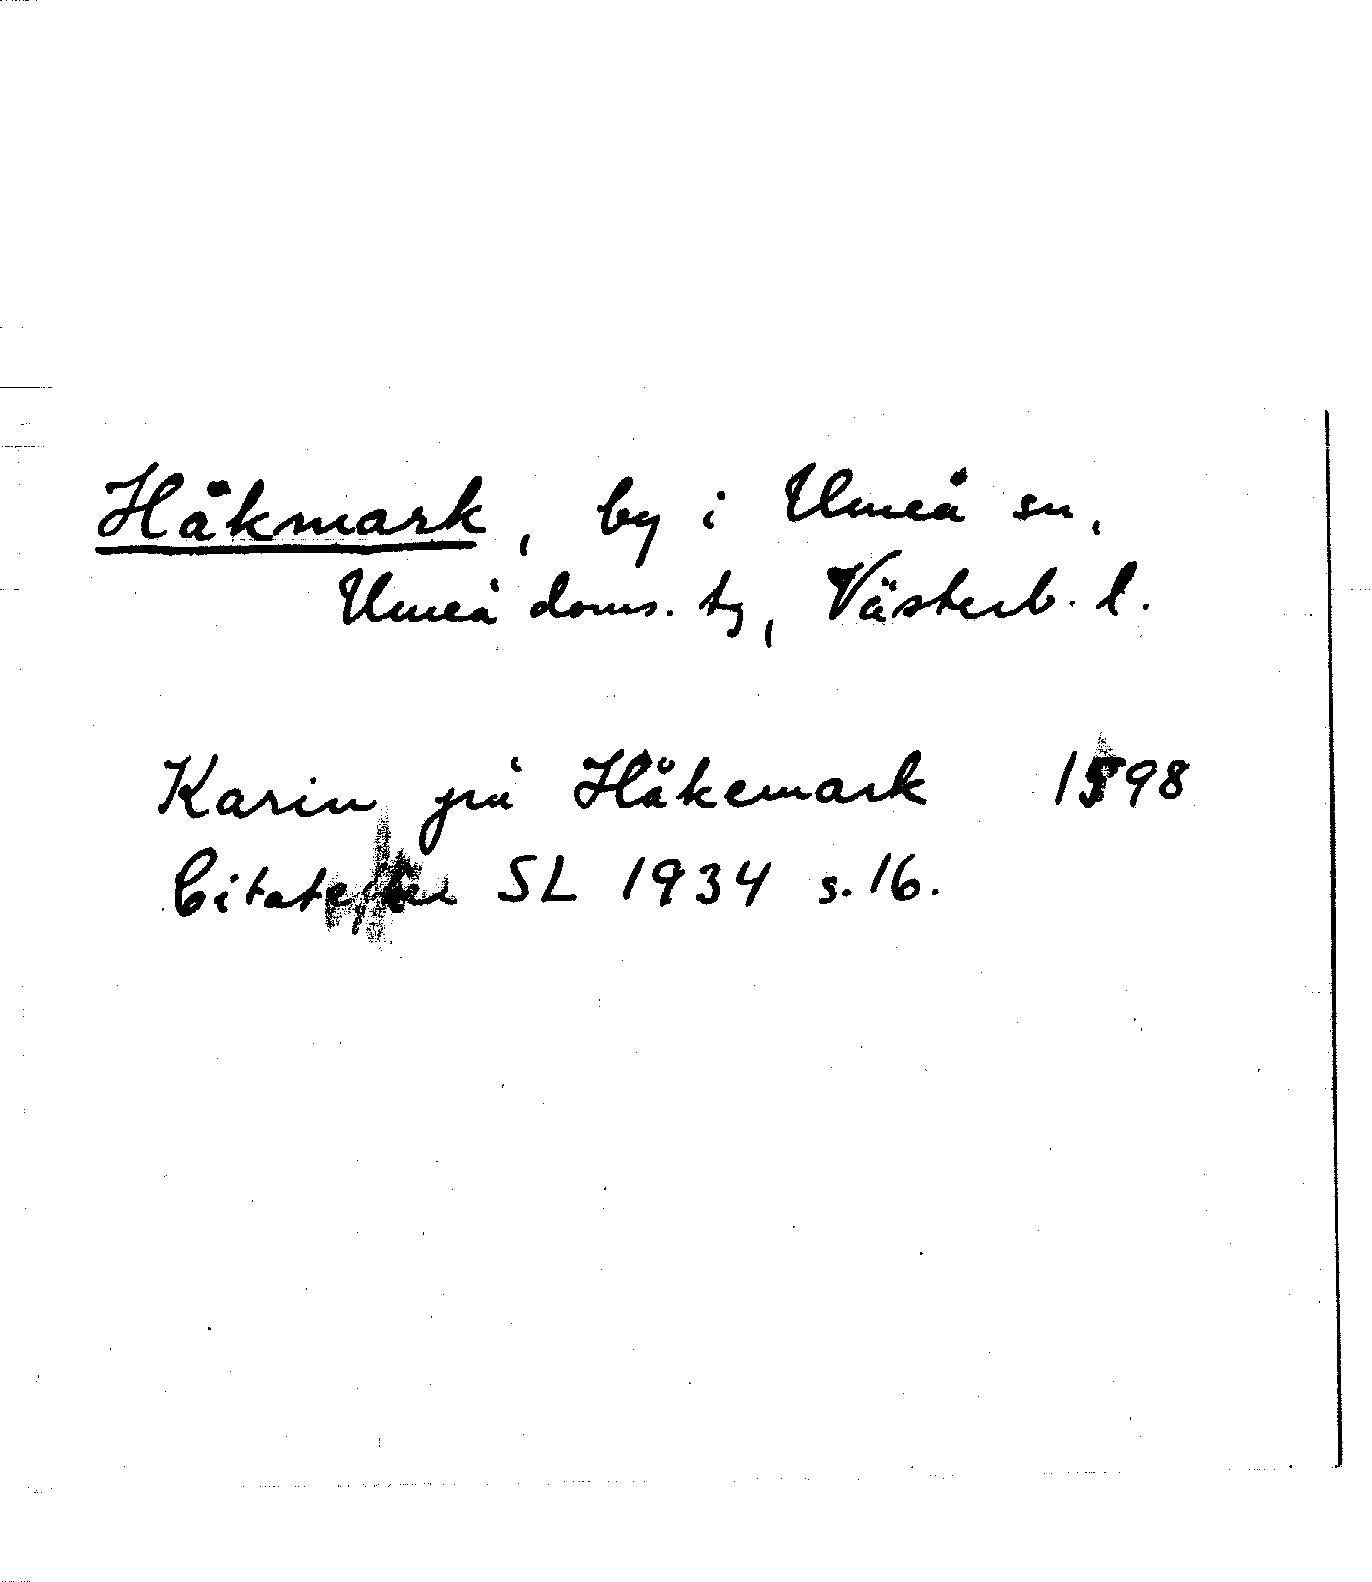 Håkmark, by i Umeå sn,
Umeå doms. tg, Västerb. l.
Karin på Håkemark 1598
Citat SL 1934 s. 16.